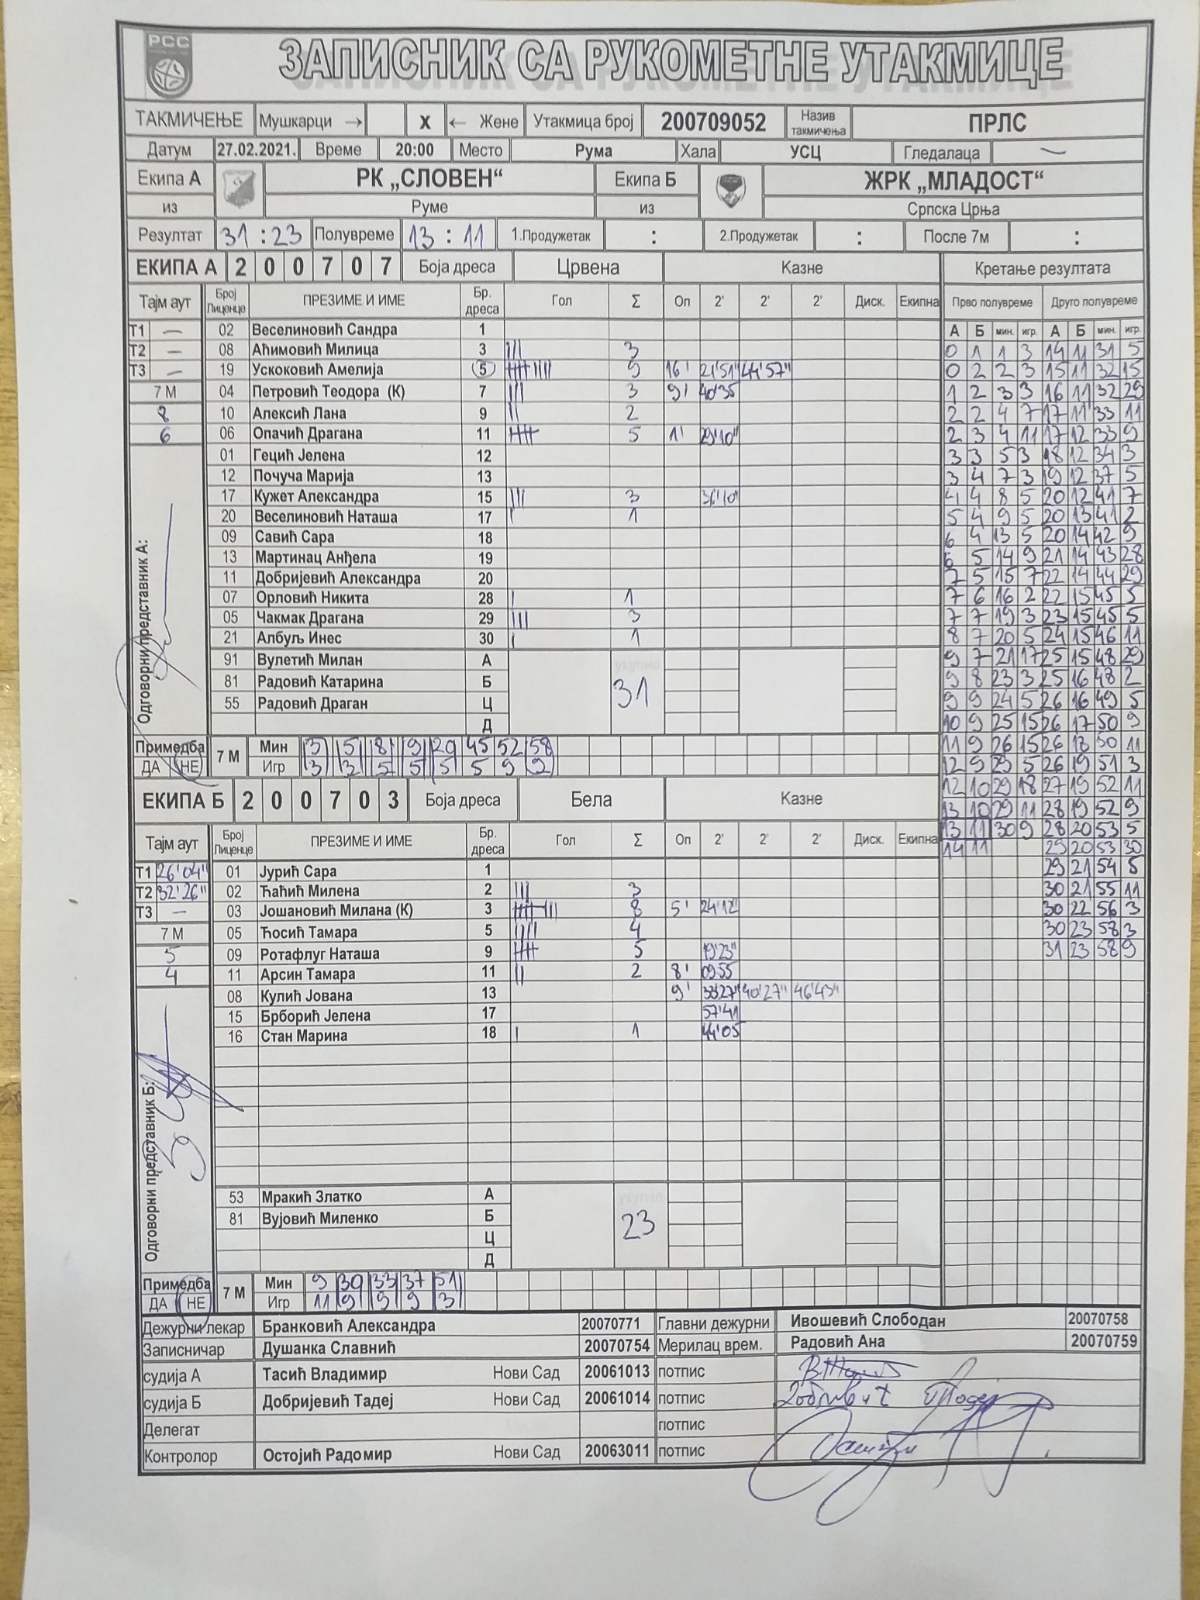 РСС
ЗАПИСНИК СА РУКОМЕТНЕ УТАКМИЦЕ
ТАКМИЧЕЊЕ Мушкарци → X ← Жене Утакмица број 200709052 Назив такмичења ПРЛС
Датум 27.02.2021. Време 20:00 Место Рума Хала УСЦ Гледалаца —
Екипа А РК „СЛОВЕН“ Екипа Б ЖРК „МЛАДОСТ“
из Руме из Српска Црња
Резултат 31 : 23 Полувреме 13 : 11 1.Продужетак : 2.Продужетак : После 7м :
ЕКИПА А 2 0 0 7 0 7 Боја дреса Црвена Казне Кретање резултата
Тајм аут Број Лиценце ПРЕЗИМЕ И ИМЕ Бр. дреса Гол Σ Оп 2' 2' 2' Диск. Екипна Прво полувреме Друго полувреме
Т1 — 02 Веселиновић Сандра 1 А Б мин. игр. А Б мин. игр.
Т2 — 08 Аћимовић Милица 3 ||| 3 0 1 1 3 14 11 31 5
Т3 — 19 Ускоковић Амелија 5 9 16' 21'51" 44'57" 0 2 2 3 15 11 32 15
7 М 04 Петровић Теодора (К) 7 ||| 3 9' 40'35 1 2 3 3 16 11 32 29
8 10 Алексић Лана 9 || 2 2 2 4 7 17 11 33 11
6 06 Опачић Драгана 11 5 1' 29'10" 2 3 4 11 17 12 33 9
01 Гецић Јелена 12 3 3 5 3 18 12 34 3
12 Почуча Марија 13 3 4 7 3 19 12 37 5
17 Кужет Александра 15 ||| 3 36'10" 4 4 8 5 20 12 41 7
20 Веселиновић Наташа 17 | 1 5 4 9 5 20 13 41 2
09 Савић Сара 18 6 4 13 5 20 14 42 9
13 Мартинац Анђела 19 6 5 14 9 21 14 43 28
11 Добријевић Александра 20 7 5 15 7 22 14 44 29
07 Орловић Никита 28 | 1 7 6 16 2 22 15 45 5
05 Чакмак Драгана 29 ||| 3 7 7 19 3 23 15 45 5
21 Албуљ Инес 30 | 1 8 7 20 5 24 15 46 11
91 Вулетић Милан А 9 7 21 17 25 15 48 29
81 Радовић Катарина Б 31 9 8 23 3 25 16 48 2
55 Радовић Драган Ц 9 9 24 5 26 16 49 5
Д 10 9 25 15 26 17 50 9
Одговорни представник А:
Примедба 7 М Мин 3 5 8 9 29 45 52 58 11 9 26 15 26 18 50 11
ДА НЕ Игр 3 3 5 5 5 5 9 2 12 9 29 5 26 19 51 3
ЕКИПА Б 2 0 0 7 0 3 Боја дреса Бела Казне 12 10 29 18 27 19 52 11
13 10 29 11 28 19 52 9
Тајм аут Број Лиценце ПРЕЗИМЕ И ИМЕ Бр. дреса Гол Σ Оп 2' 2' 2' Диск. Екипна 13 11 30 9 28 20 53 5
14 11 29 20 53 30
Т1 26'04" 01 Јурић Сара 1 29 21 54 5
Т2 32'26" 02 Ћаћић Милена 2 ||| 3 30 21 55 11
Т3 — 03 Јошановић Милана (К) 3 8 5' 24'12" 30 22 56 3
7 М 05 Ћосић Тамара 5 |||| 4 30 23 58 3
5 09 Ротафлуг Наташа 9 5 19'23" 31 23 58 9
4 11 Арсин Тамара 11 || 2 8' 09'55
08 Кулић Јована 13 9' 33'27" 40'27" 46'43"
15 Брборић Јелена 17 57'41
16 Стан Марина 18 | 1 44'05
Одговорни представник Б:
53 Мракић Златко А
81 Вујовић Миленко Б 23
Ц
Д
Примедба 7 М Мин 9 30 33 37 51
ДА НЕ Игр 11 9 9 9 3
Дежурни лекар Бранковић Александра 20070771 Главни дежурни Ивошевић Слободан 20070758
Записничар Душанка Славнић 20070754 Мерилац врем. Радовић Ана 20070759
судија А Тасић Владимир Нови Сад 20061013 потпис
судија Б Добријевић Тадеј Нови Сад 20061014 потпис
Делегат потпис
Контролор Остојић Радомир Нови Сад 20063011 потпис